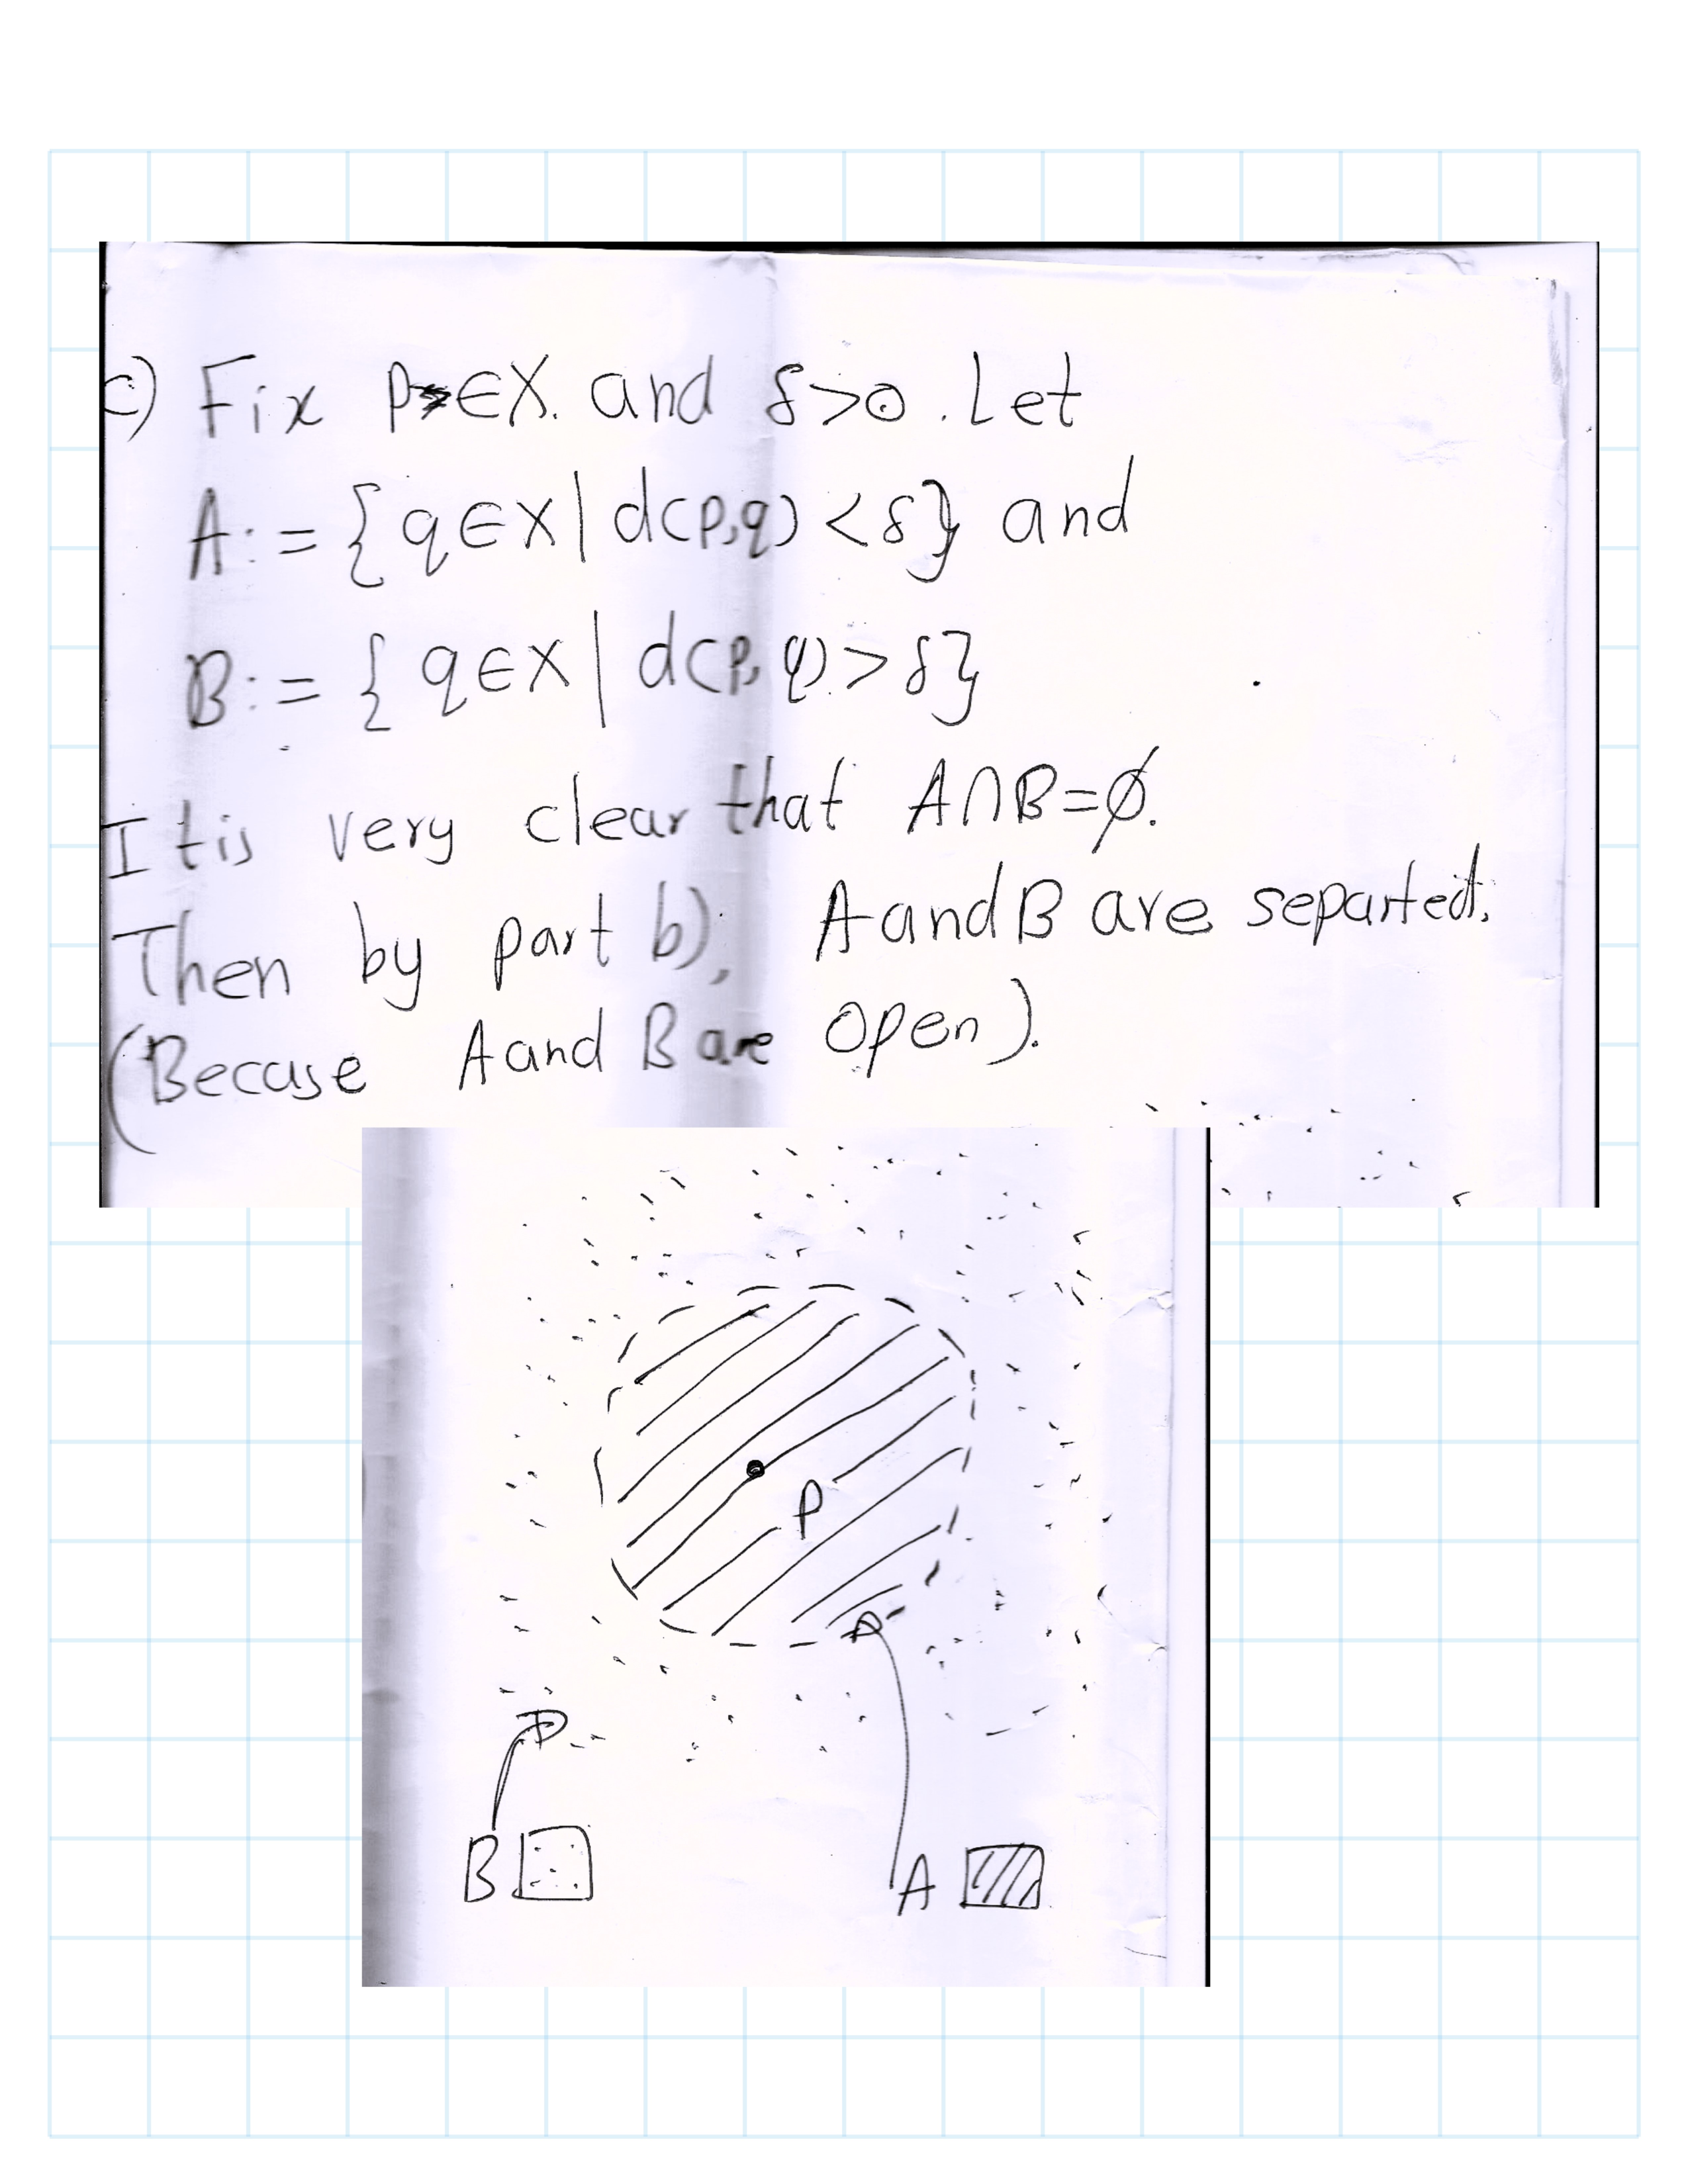 c) Fix p∈X. and δ>0. Let
A:= {q∈X| d(p,q) <δ} and
B:= {q∈X| d(p,q)>δ}
It is very clear that A∩B=∅.
Then by part b), A and B are separted.
(Becuse A and B are open).
P
B
A